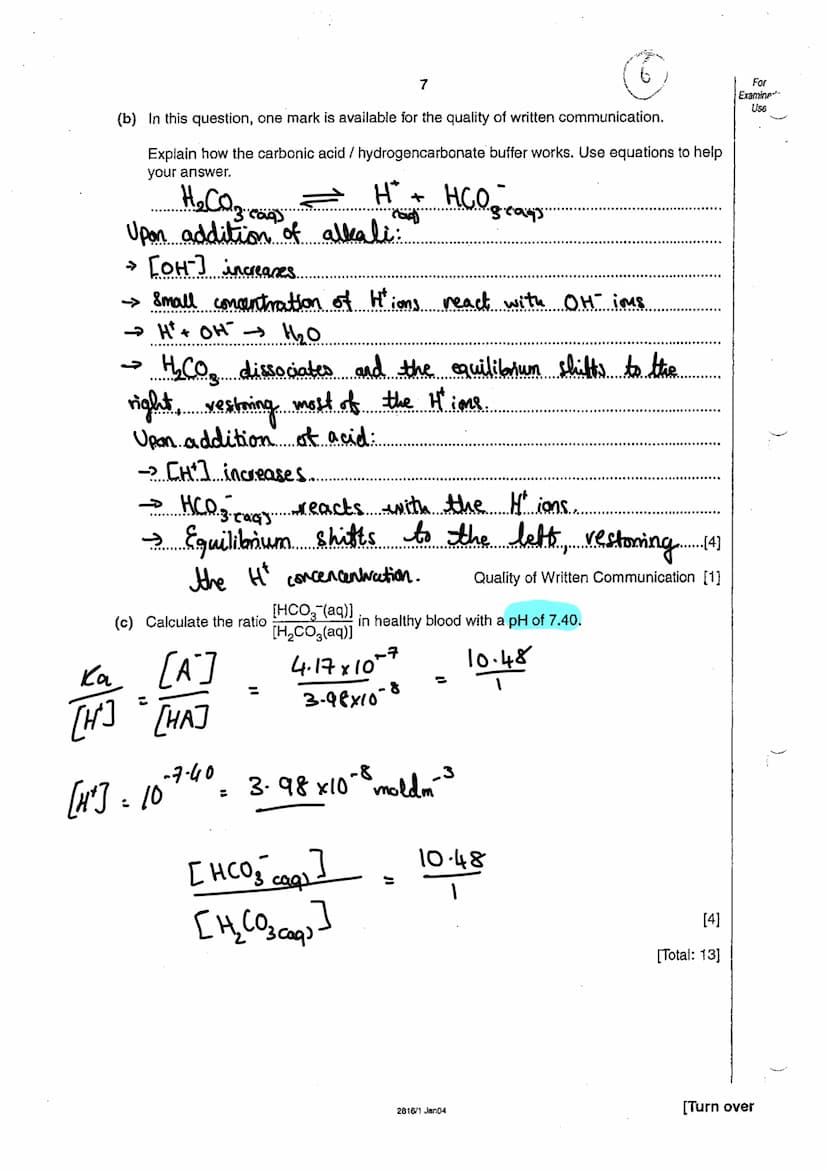 6
7
For
Examiner's
Use
(b) In this question, one mark is available for the quality of written communication.
Explain how the carbonic acid / hydrogencarbonate buffer works. Use equations to help
your answer.
H₂CO₃(aq) ⇌ H⁺(aq) + HCO₃⁻(aq)
Upon addition of alkali:
→ [OH⁻] increases
→ Small concentration of H⁺ ions react with OH⁻ ions
→ H⁺ + OH⁻ → H₂O
→ H₂CO₃ dissociates and the equilibrium shifts to the
right, restoring most of the H⁺ ions.
Upon addition of acid:
→ [H⁺] increases.
→ HCO₃⁻(aq) reacts with the H⁺ ions.
→ Equilibrium shifts to the left, restoring [4]
the H⁺ concencentration. Quality of Written Communication [1]
(c) Calculate the ratio [HCO₃⁻(aq)] / [H₂CO₃(aq)] in healthy blood with a pH of 7.40.
Ka / [H⁺] = [A⁻] / [HA] = 4.17 x 10⁻⁷ / 3.98 x 10⁻⁸ = 10.48 / 1
[H⁺] = 10⁻⁷·⁴⁰ = 3.98 x 10⁻⁸ moldm⁻³
[HCO₃⁻(aq)] / [H₂CO₃(aq)] = 10.48 / 1
[4]
[Total: 13]
2816/1 Jan04
[Turn over